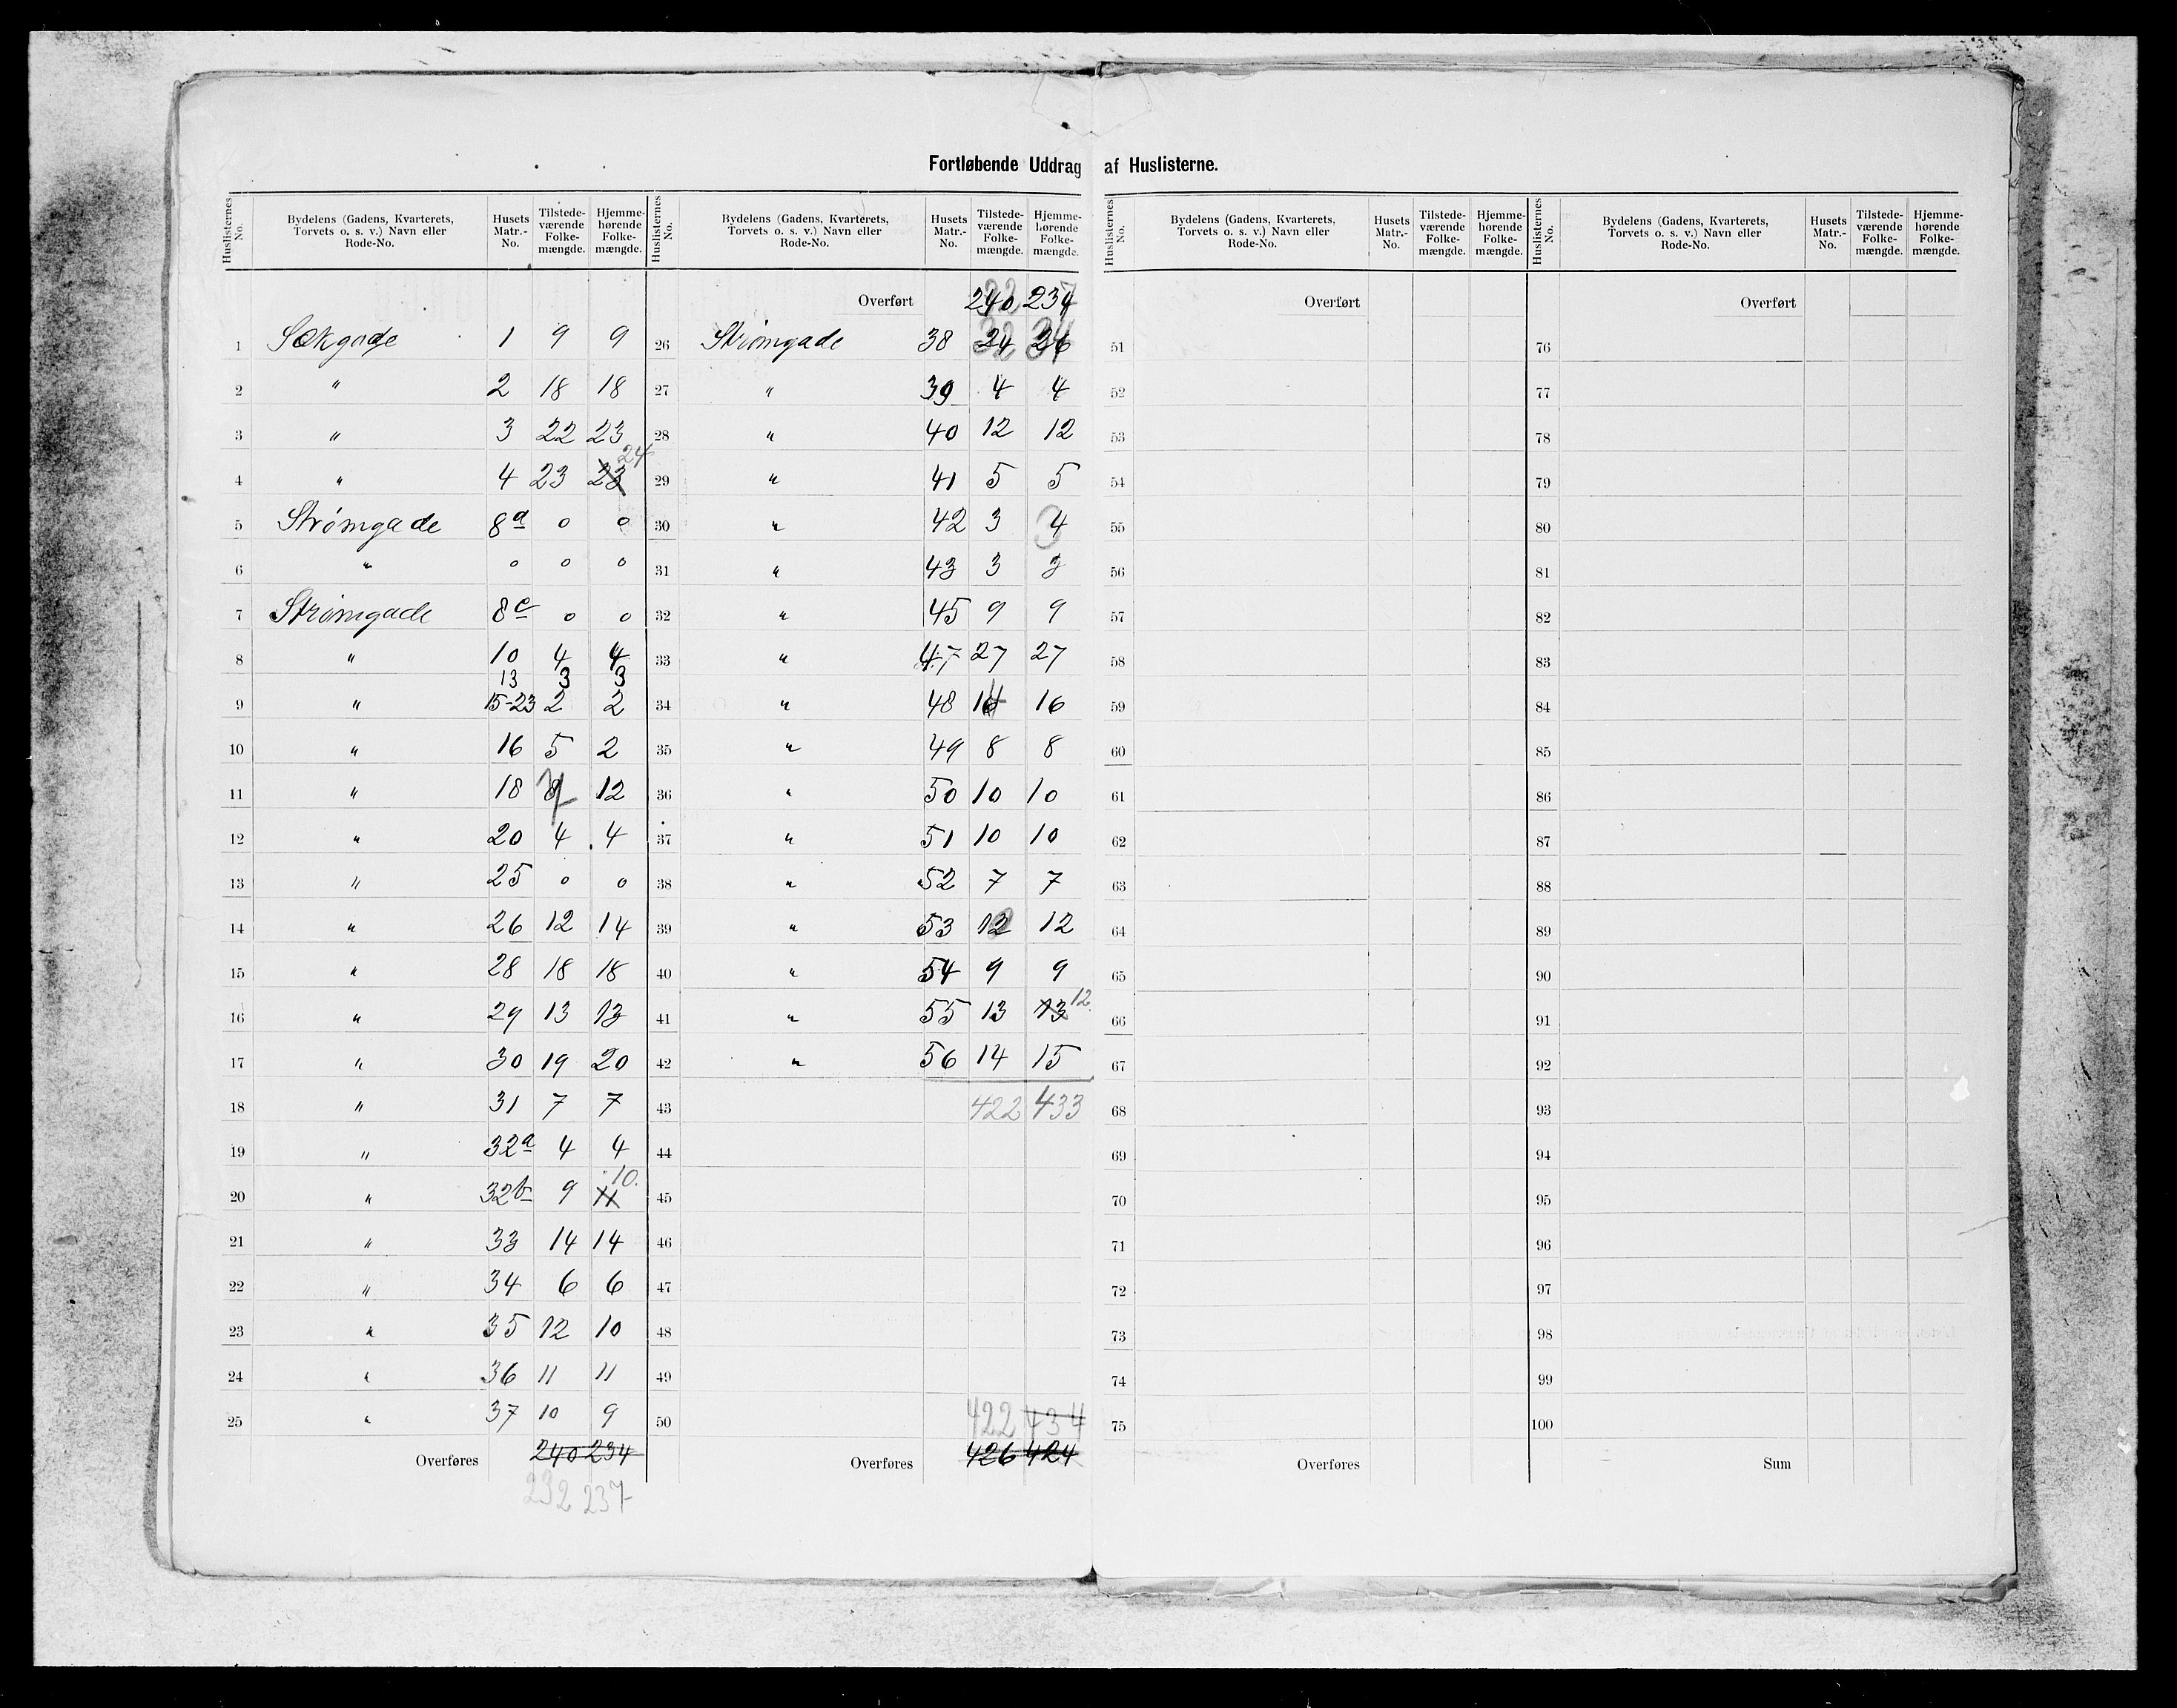 Fortløbende Uddrag af Huslisterne.
Huslisternes No. | Bydelens (Gadens, Kvarterets, Torvets o. s. v.) Navn eller Rode-No. | Husets Matr.-No. | Tilstedeværende Folkemængde. | Hjemmehørende Folkemængde.
1 Sækgade 1 9 9
2 " 2 18 18
3 " 3 22 23
4 " 4 23 23 24
5 Strømgade 8a 0 0
6 " 0 0 0
7 Strømgade 8c 0 0
8 " 10 4 4
13 3 3
9 " 15-23 2 2
10 " 16 5 2
11 " 18 12
12 " 20 4 4
13 " 25 0 0
14 " 26 12 14
15 " 28 18 18
16 " 29 13 13
17 " 30 19 20
18 " 31 7 7
19 " 32a 4 4
20 " 32b 9 11 10.
21 " 33 14 14
22 " 34 6 6
23 " 35 12 10
24 " 36 11 11
25 " 37 10 9
Overføres 240 234
232 237
Huslisternes No. | Bydelens (Gadens, Kvarterets, Torvets o. s. v.) Navn eller Rode-No. | Husets Matr.-No. | Tilstedeværende Folkemængde. | Hjemmehørende Folkemængde.
Overført 240 234
26 Strømgade 38 24 26
27 " 39 4 4
28 " 40 12 12
29 " 41 5 5
30 " 42 3 4
31 " 43 3 3
32 " 45 9 9
33 " 47 27 27
34 " 48 16 16
35 " 49 8 8
36 " 50 10 10
37 " 51 10 10
38 " 52 7 7
39 " 53 12 12
40 " 54 9 9
41 " 55 13 13 12
42 " 56 14 15
43 422 433
44
45
46
47
48
49
50 422 434
Overføres 426 424
Huslisternes No. | Bydelens (Gadens, Kvarterets, Torvets o. s. v.) Navn eller Rode-No. | Husets Matr.-No. | Tilstedeværende Folkemængde. | Hjemmehørende Folkemængde.
Overført
51
52
53
54
55
56
57
58
59
60
61
62
63
64
65
66
67
68
69
70
71
72
73
74
75
Overføres
Huslisternes No. | Bydelens (Gadens, Kvarterets, Torvets o. s. v.) Navn eller Rode-No. | Husets Matr.-No. | Tilstedeværende Folkemængde. | Hjemmehørende Folkemængde.
Overført
76
77
78
79
80
81
82
83
84
85
86
87
88
89
90
91
92
93
94
95
96
97
98
99
100
Sum